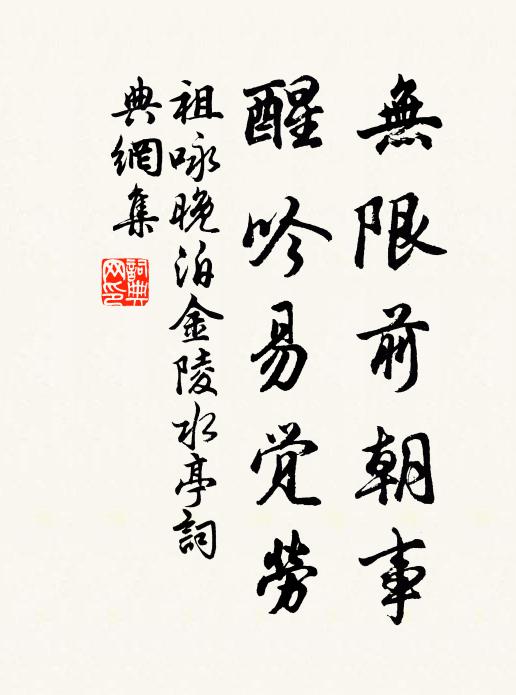 無限前朝事
醒吟易覺勞
祖咏晚泊金陵水亭詞
典網集
詞典
网印